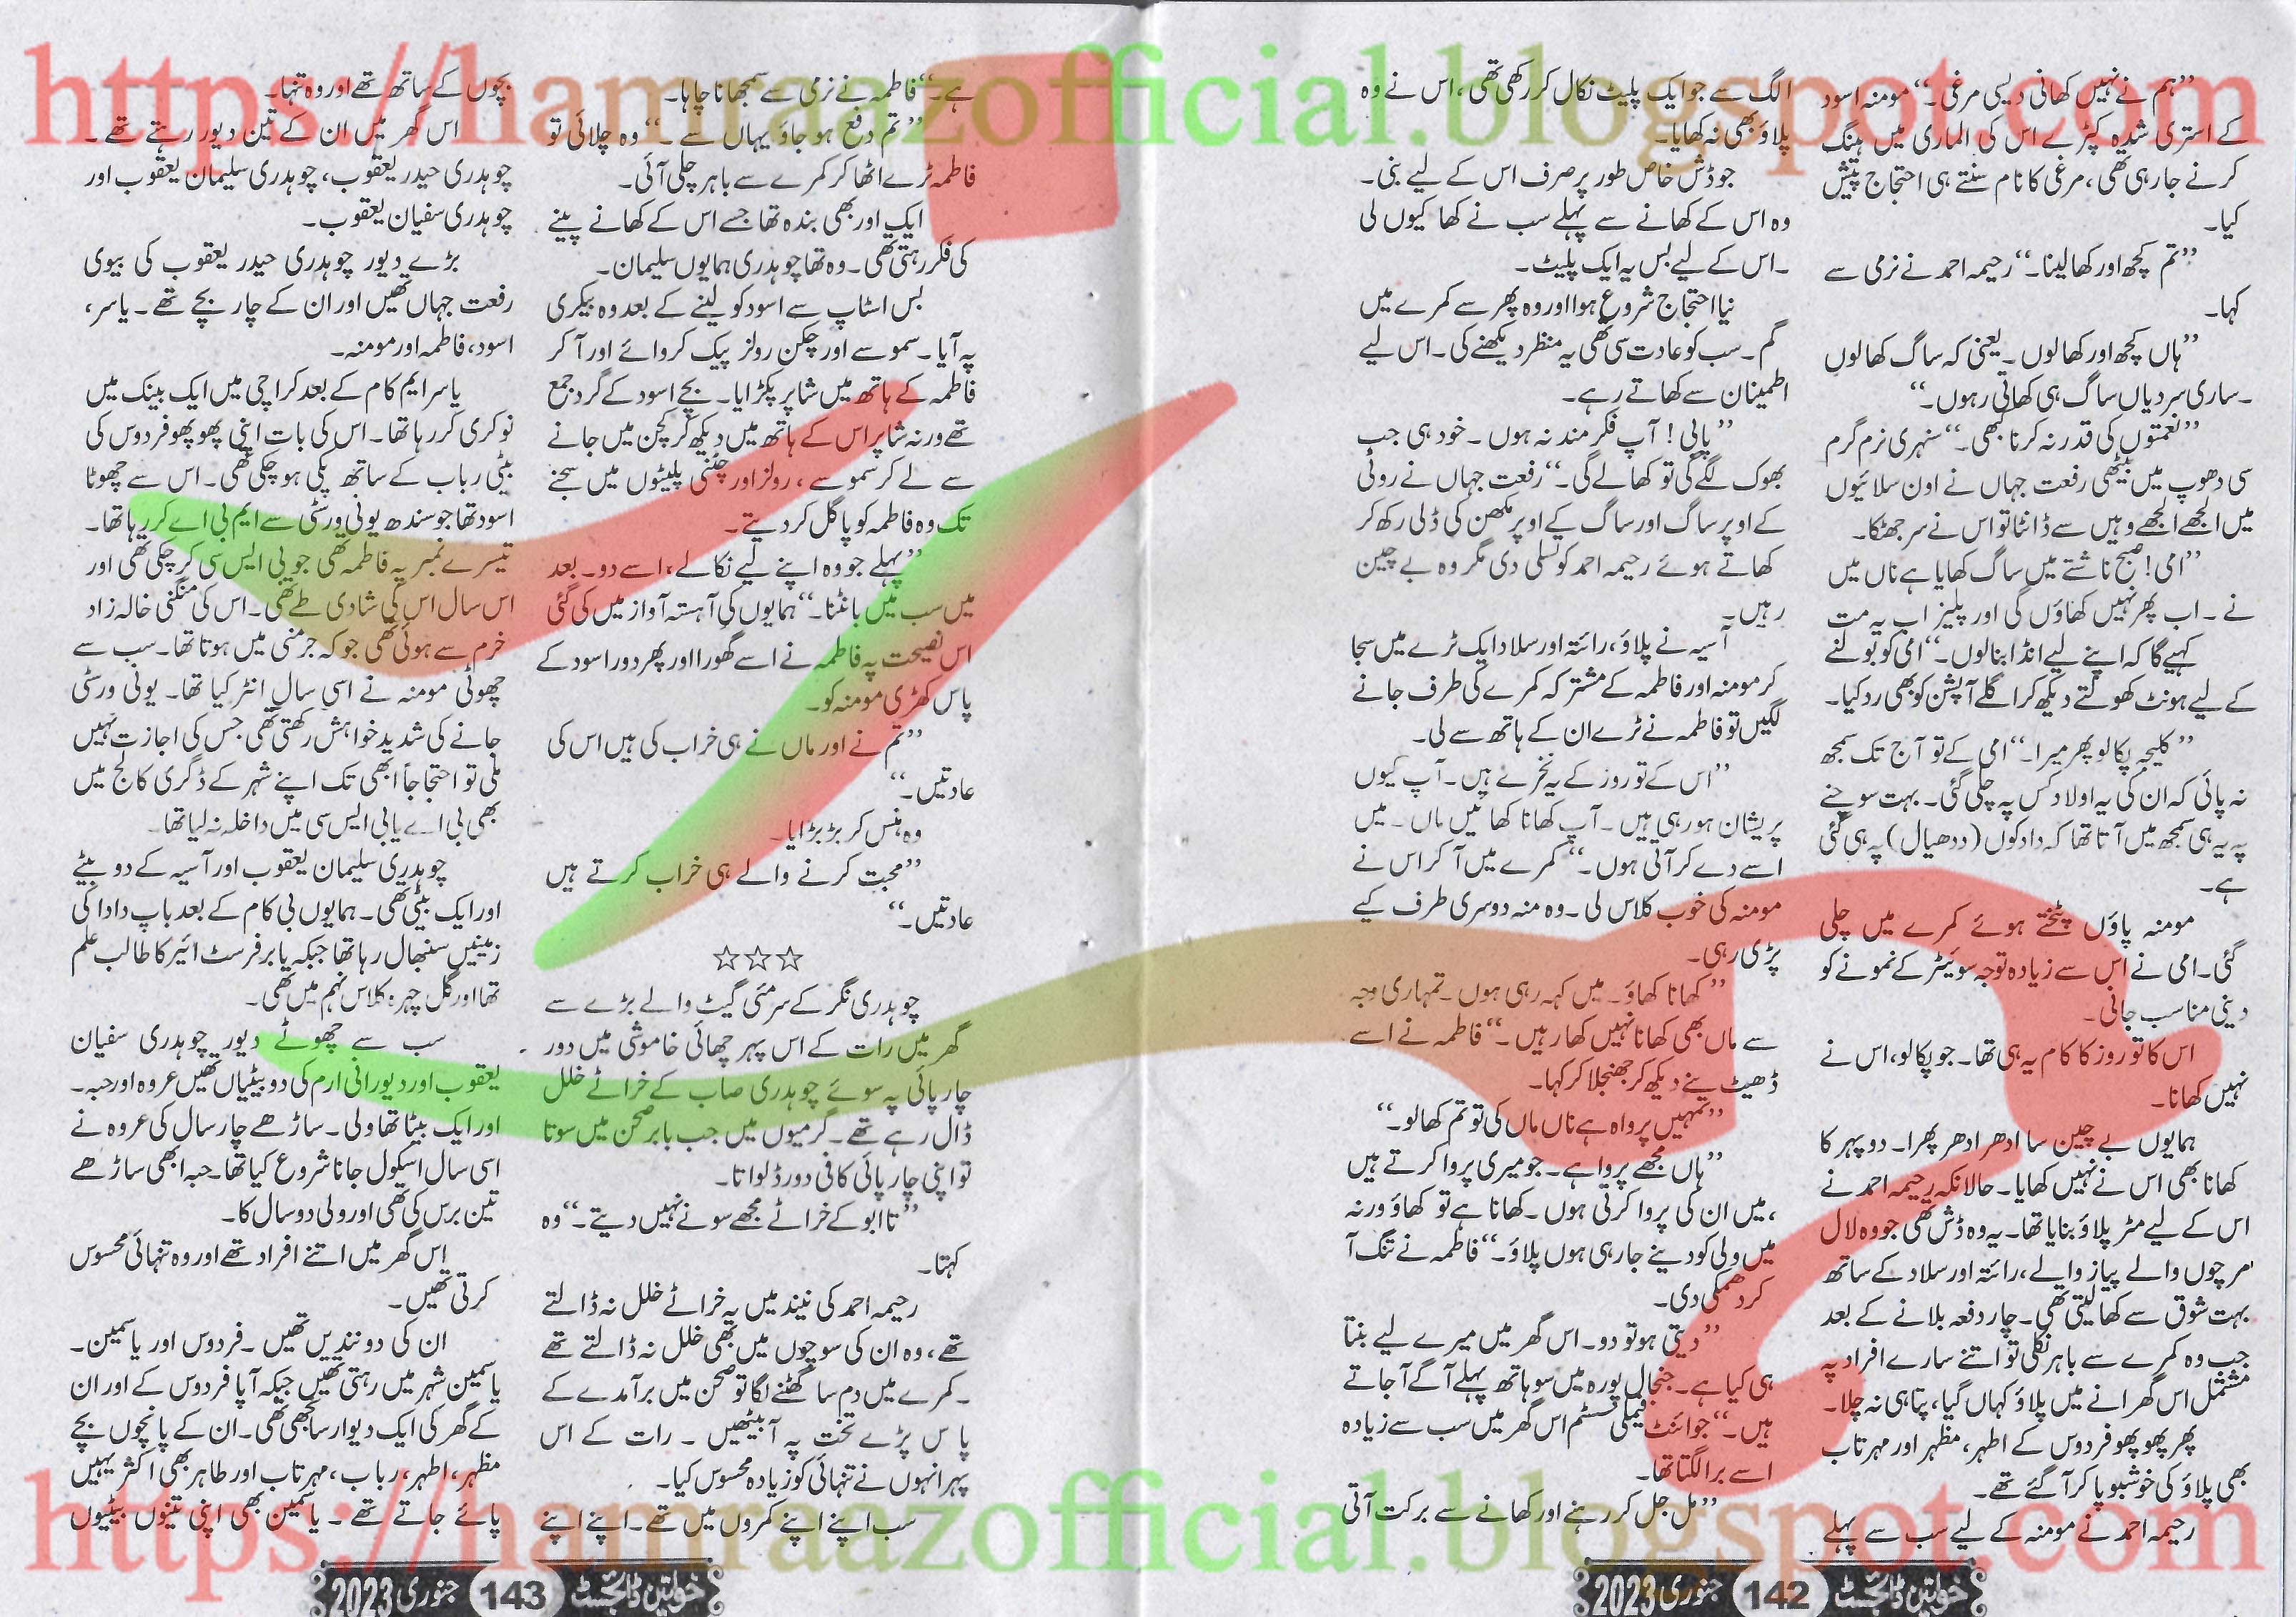 https://hamraazofficial.blogspot.com
”ہم نے نہیں کھانی دیسی مرغی۔“ مومنہ اسود
کے استری شدہ کپڑے اس کی الماری میں ہینگ
کرنے جا رہی تھی، مرغی کا نام سنتے ہی احتجاج پیش
کیا۔
”تم کچھ اور کھا لینا۔“ رحیمہ احمد نے نرمی سے
کہا۔
”ہاں کچھ اور کھا لوں۔ یعنی کہ ساگ کھا لوں
۔ ساری سردیاں ساگ ہی کھاتی رہوں۔“
”نعمتوں کی قدر نہ کرنا کبھی۔“ سنہری نرم گرم
سی دھوپ میں بیٹھی رفعت جہاں نے اون سلائیوں
میں الجھے الجھے وہیں سے ڈانٹا تو اس نے سر جھٹکا۔
”امی! صبح ناشتے میں ساگ کھایا ہے ناں میں
نے۔ اب پھر نہیں کھاؤں گی اور پلیز اب یہ مت
کہیے گا کہ اپنے لیے انڈا بنا لوں۔“ امی کو بولنے
کے لیے ہونٹ کھولتے دیکھ کر اگلے آپشن کو بھی رد کیا۔
”کلیجہ پکا لو پھر میرا۔“ امی کے تو آج تک سمجھ
نہ پائی کہ ان کی یہ اولاد کس پہ چلی گئی۔ بہت سوچنے
پہ یہ ہی سمجھ میں آتا تھا کہ دادکوں (ددھیال) پہ ہی گئی
ہے۔
مومنہ پاؤں پٹختے ہوئے کمرے میں چلی
گئی۔ امی نے اس سے زیادہ توجہ سوئیٹر کے نمونے کو
دینی مناسب جانی۔
اس کا تو روز کا کام یہ ہی تھا۔ جو پکا لو، اس نے
نہیں کھانا۔
ہمایوں بے چین سا ادھر ادھر پھرا۔ دوپہر کا
کھانا بھی اس نے نہیں کھایا۔ حالانکہ رحیمہ احمد نے
اس کے لیے مٹر پلاؤ بنایا تھا۔ یہ وہ ڈش تھی جو وہ لال
مرچوں والے پیاز والے، رائتہ اور سلاد کے ساتھ
بہت شوق سے کھا لیتی تھی۔ چار دفعہ بلانے کے بعد
جب وہ کمرے سے باہر نکلی تو اتنے سارے افراد پہ
مشتمل اس گھرانے میں پلاؤ کہاں گیا، پتا ہی نہ چلا۔
پھر پھوپھو فردوس کے اطہر، مظہر اور مہرتاب
بھی پلاؤ کی خوشبو پا کر آ گئے تھے۔
رحیمہ احمد نے مومنہ کے لیے سب سے پہلے
الگ سے جو ایک پلیٹ نکال کر رکھی تھی، اس نے وہ
پلاؤ بھی نہ کھایا۔
جو ڈش خاص طور پر صرف اس کے لیے بنی۔
وہ اس کے کھانے سے پہلے سب نے کھا کیوں لی
۔ اس کے لیے بس یہ ایک پلیٹ۔
نیا احتجاج شروع ہوا اور وہ پھر سے کمرے میں
گم۔ سب کو عادت سی تھی یہ منظر دیکھنے کی۔ اس لیے
اطمینان سے کھاتے رہے۔
”پالی! آپ فکرمند نہ ہوں۔ خود ہی جب
بھوک لگے گی تو کھا لے گی۔“ رفعت جہاں نے روٹی
کے اوپر ساگ اور ساگ کے اوپر مکھن کی ڈلی رکھ کر
کھاتے ہوئے رحیمہ احمد کو تسلی دی مگر وہ بے چین
رہیں۔
آسیہ نے پلاؤ، رائتہ اور سلاد ایک ٹرے میں سجا
کر مومنہ اور فاطمہ کے مشترکہ کمرے کی طرف جانے
لگیں تو فاطمہ نے ٹرے ان کے ہاتھ سے لی۔
”اس کے تو روز کے یہ نخرے ہیں۔ آپ کیوں
پریشان ہو رہی ہیں۔ آپ کھانا کھائیں ماں۔ میں
اسے دے کر آتی ہوں۔“ کمرے میں آ کر اس نے
مومنہ کی خوب کلاس لی۔ وہ منہ دوسری طرف کیے
پڑی رہی۔
”کھانا کھاؤ۔ میں کہہ رہی ہوں۔ تمہاری وجہ
سے ماں بھی کھانا نہیں کھا رہیں۔“ فاطمہ نے اسے
ڈھیٹ بنے دیکھ کر جھنجلا کر کہا۔
”تمہیں پرواہ ہے ناں ماں کی تو تم کھا لو۔“
”ہاں مجھے پروا ہے۔ جو میری پروا کرتے ہیں
، میں ان کی پروا کرتی ہوں۔ کھانا ہے تو کھاؤ ورنہ
میں ولی کو دینے جا رہی ہوں پلاؤ۔“ فاطمہ نے تنگ آ
کر دھمکی دی۔
”دیتی ہو تو دو۔ اس گھر میں میرے لیے بنتا
ہی کیا ہے۔ جنجال پورہ میں سو ہاتھ پہلے آگے آ جاتے
ہیں۔“ جوائنٹ فیملی سسٹم اس گھر میں سب سے زیادہ
اسے برا لگتا تھا۔
”مل جل کر رہنے اور کھانے سے برکت آتی
خواتین ڈائجسٹ 142 جنوری 2023
ہے۔“ فاطمہ نے نرمی سے سمجھانا چاہا۔
”تم دفع ہو جاؤ یہاں سے۔“ وہ چلائی تو
فاطمہ ٹرے اٹھا کر کمرے سے باہر چلی آئی۔
ایک اور بھی بندہ تھا جسے اس کے کھانے پینے
کی فکر رہتی تھی۔ وہ تھا چوہدری ہمایوں سلیمان۔
بس اسٹاپ سے اسود کو لینے کے بعد وہ بیکری
پہ آیا۔ سموسے اور چکن رولز پیک کروائے اور آ کر
فاطمہ کے ہاتھ میں شاپر پکڑایا۔ بچے اسود کے گرد جمع
تھے ورنہ شاپر اس کے ہاتھ میں دیکھ کر کچن میں جانے
سے لے کر سموسے، رولز اور چٹنی پلیٹوں میں سجنے
تک وہ فاطمہ کو پاگل کر دیتے۔
”پہلے جو وہ اپنے لیے نکالے، اسے دو۔ بعد
میں سب میں بانٹنا۔“ ہمایوں کی آہستہ آواز میں کی گئی
اس نصیحت پہ فاطمہ نے اسے گھورا اور پھر دور اسود کے
پاس کھڑی مومنہ کو۔
”تم نے اور ماں نے ہی خراب کی ہیں اس کی
عادتیں۔“
وہ ہنس کر بڑبڑایا۔
”محبت کرنے والے ہی خراب کرتے ہیں
عادتیں۔“
☆☆☆
چوہدری نگر کے سرمئی گیٹ والے بڑے سے
گھر میں رات کے اس پہر چھائی خاموشی میں دور
چارپائی پہ سوئے چوہدری صاب کے خراٹے خلل
ڈال رہے تھے۔ گرمیوں میں جب بابر صحن میں سوتا
تو اپنی چارپائی کافی دور ڈلواتا۔
”تا ابو کے خراٹے مجھے سونے نہیں دیتے۔“ وہ
کہتا۔
رحیمہ احمد کی نیند میں یہ خراٹے خلل نہ ڈالتے
تھے، وہ ان کی سوچوں میں بھی خلل نہ ڈالتے تھے
۔ کمرے میں دم سا گھٹنے لگا تو صحن میں برآمدے کے
پاس پڑے تخت پہ آ بیٹھیں۔ رات کے اس
پہر انہوں نے تنہائی کو زیادہ محسوس کیا۔
سب اپنے اپنے کمروں میں تھے۔ اپنے اپنے
بچوں کے ساتھ تھے اور وہ تنہا۔
اس گھر میں ان کے تین دیور رہتے تھے۔
چوہدری حیدر یعقوب، چوہدری سلیمان یعقوب اور
چوہدری سفیان یعقوب۔
بڑے دیور چوہدری حیدر یعقوب کی بیوی
رفعت جہاں تھیں اور ان کے چار بچے تھے۔ یاسر،
اسود، فاطمہ اور مومنہ۔
یاسر ایم کام کے بعد کراچی میں ایک بینک میں
نوکری کر رہا تھا۔ اس کی بات اپنی پھوپھو فردوس کی
بیٹی رباب کے ساتھ پکی ہو چکی تھی۔ اس سے چھوٹا
اسود تھا جو سندھ یونی ورسٹی سے ایم بی اے کر رہا تھا۔
تیسرے نمبر پہ فاطمہ تھی جو بی ایس سی کر چکی تھی اور
اس سال اس کی شادی طے تھی۔ اس کی منگنی خالہ زاد
خرم سے ہوئی تھی جو کہ جرمنی میں ہوتا تھا۔ سب سے
چھوٹی مومنہ نے اسی سال انٹر کیا تھا۔ یونی ورسٹی
جانے کی شدید خواہش رکھتی تھی جس کی اجازت نہیں
ملی تو احتجاجاً ابھی تک اپنے شہر کے ڈگری کالج میں
بھی بی اے یا بی ایس سی میں داخلہ نہ لیا تھا۔
چوہدری سلیمان یعقوب اور آسیہ کے دو بیٹے
اور ایک بیٹی تھی۔ ہمایوں بی کام کے بعد باپ دادا کی
زمینیں سنبھال رہا تھا جبکہ بابر فرسٹ ائیر کا طالب علم
تھا اور گل چہرہ کلاس نہم میں تھی۔
سب سے چھوٹے دیور چوہدری سفیان
یعقوب اور دیورانی ارم کی دو بیٹیاں تھیں عروہ اور حبہ۔
اور ایک بیٹا تھا ولی۔ ساڑھے چار سال کی عروہ نے
اسی سال اسکول جانا شروع کیا تھا۔ حبہ ابھی ساڑھے
تین برس کی تھی اور ولی دو سال کا۔
اس گھر میں اتنے افراد تھے اور وہ تنہائی محسوس
کرتی تھیں۔
ان کی دو نندیں تھیں۔ فردوس اور یاسمین۔
یاسمین شہر میں رہتی تھیں جبکہ آپا فردوس کے اور ان
کے گھر کی ایک دیوار سانجھی تھی۔ ان کے پانچوں بچے
مظہر، اطہر، رباب، مہرتاب اور طاہر بھی اکثر یہیں
پائے جاتے تھے۔ یاسمین بھی اپنی تینوں بیٹیوں
خواتین ڈائجسٹ 143 جنوری 2023
https://hamraazofficial.blogspot.com